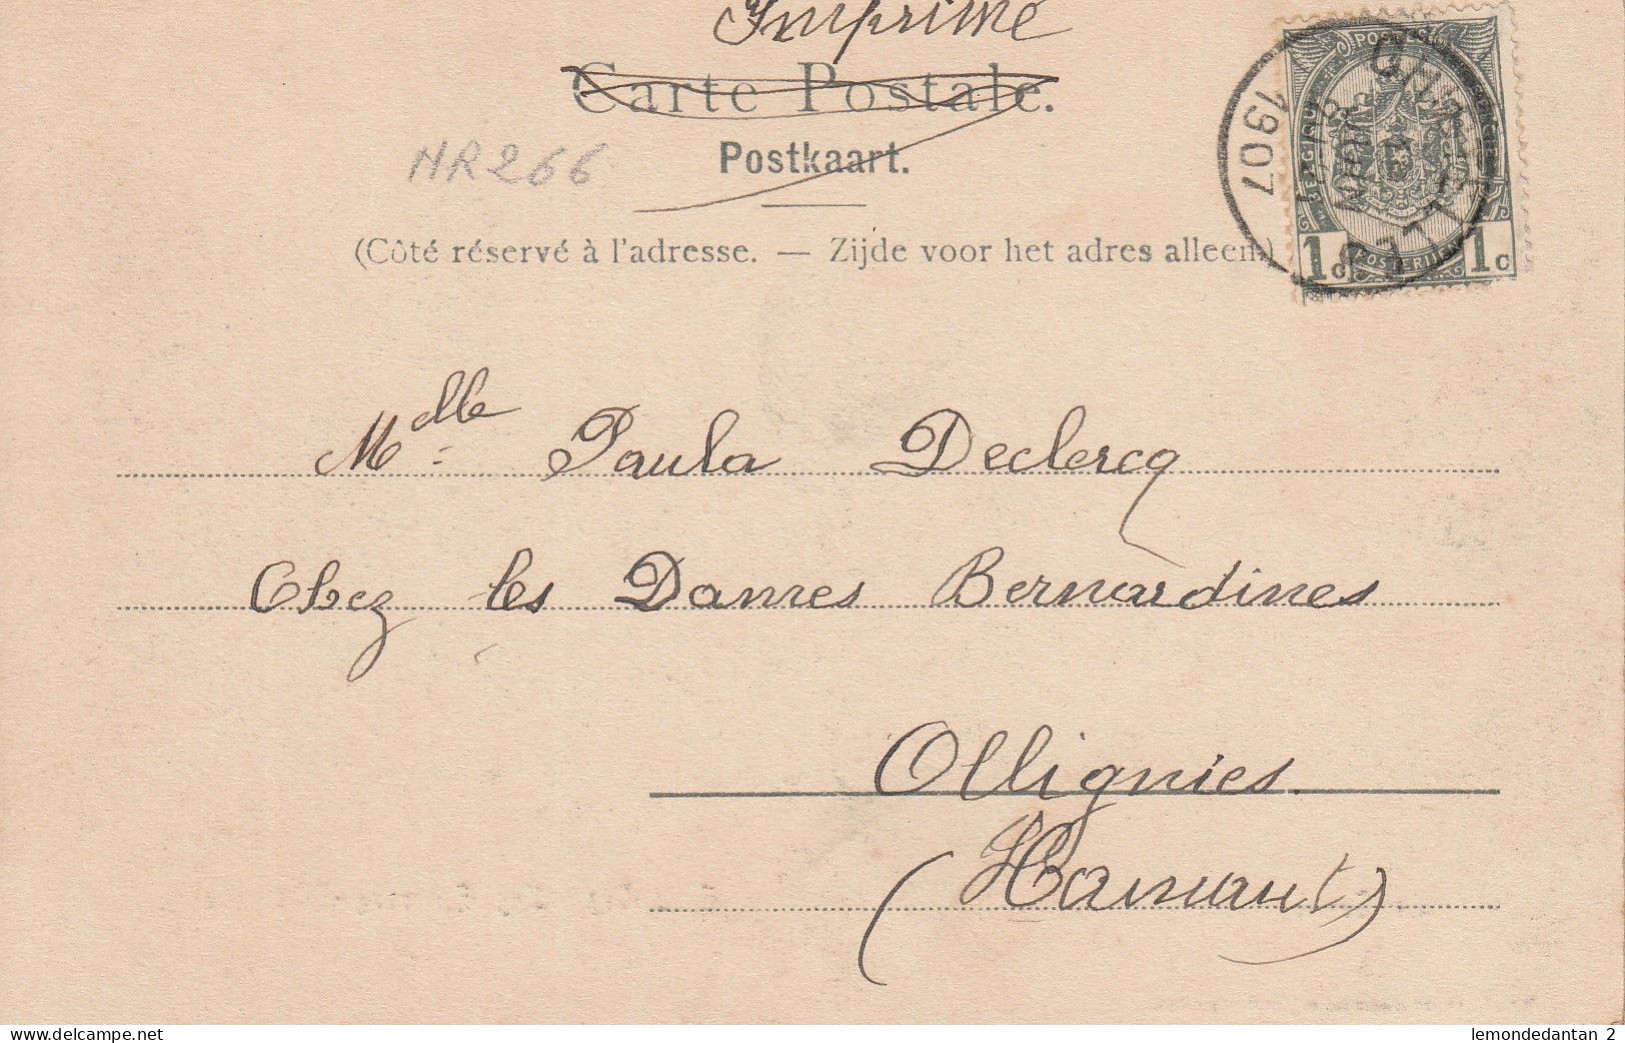 Imprimé
Carte Postale.
NR266
Postkaart.
(Côté réservé à l'adresse. — Zijde voor het adres alleen.)
1907
1c 1c
Mdlle Paula Declercq
Chez les Dames Bernardines
Ollignies.
(Hainaut)
delcampe.net
lemondedantan 2